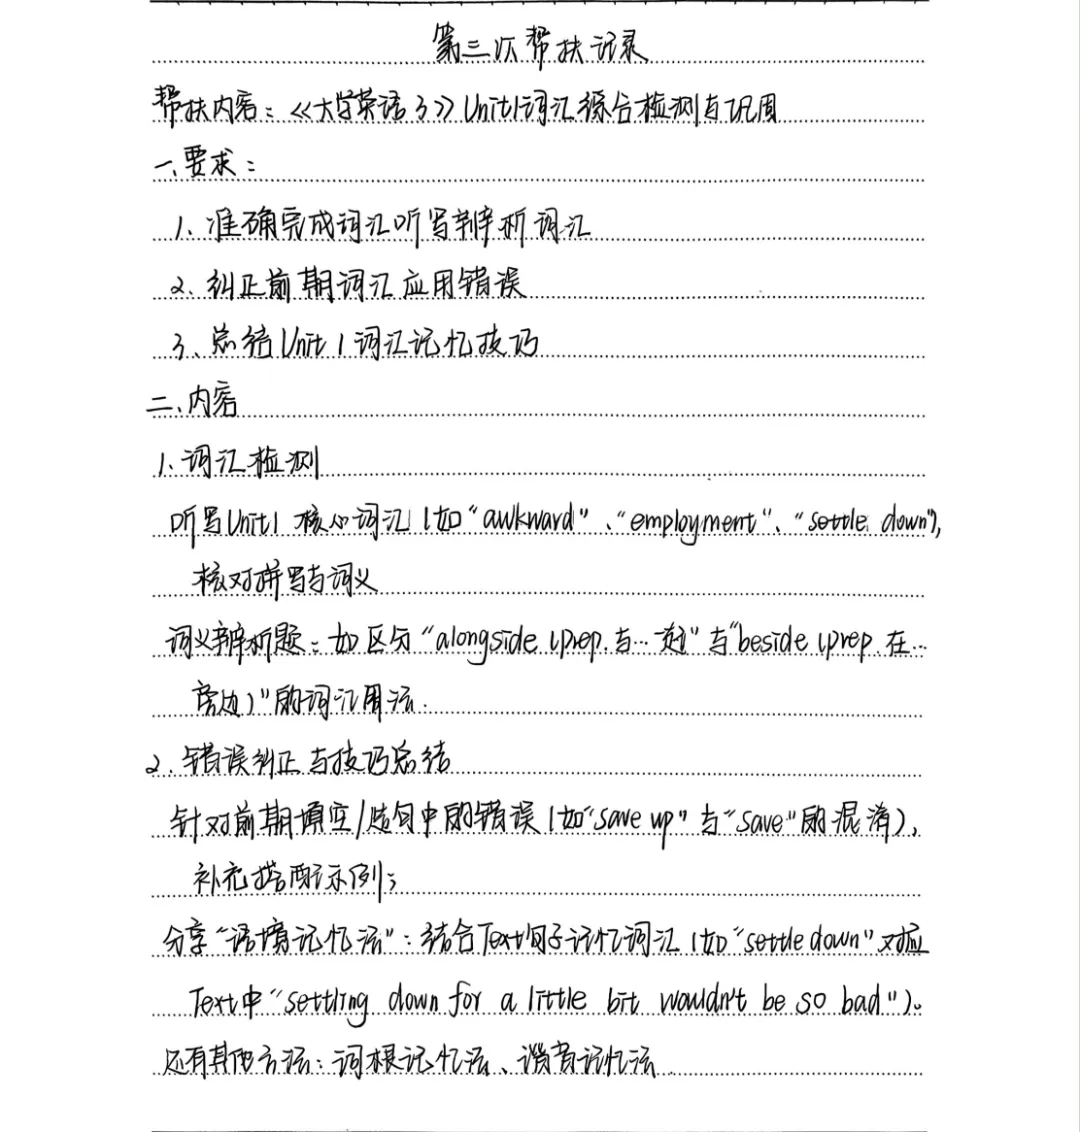 第三次帮扶记录
帮扶内容：《大学英语3》Unit1词汇综合检测与巩固
一、要求：
1、准确完成词汇听写辨析词汇
2、纠正前期词汇应用错误
3、总结Unit 1词汇记忆技巧
二、内容
1、词汇检测
听写Unit1 核心词汇(如"awkward"、"employment"、"settle down"),
核对拼写与词义
词义辨析题：如区分"alongside (prep.与…一起"与"beside (prep.在…
旁边)"的词汇用法.
2.错误纠正与技巧总结
针对前期填空/造句中的错误(如"save up"与"save"的混淆),
补充搭配示例;
分享"语境记忆法"：结合Text句子记忆词汇(如"settle down"对应
Text中"settling down for a little bit wouldn't be so bad")。
还有其他方法：词根记忆法、谐音记忆法.